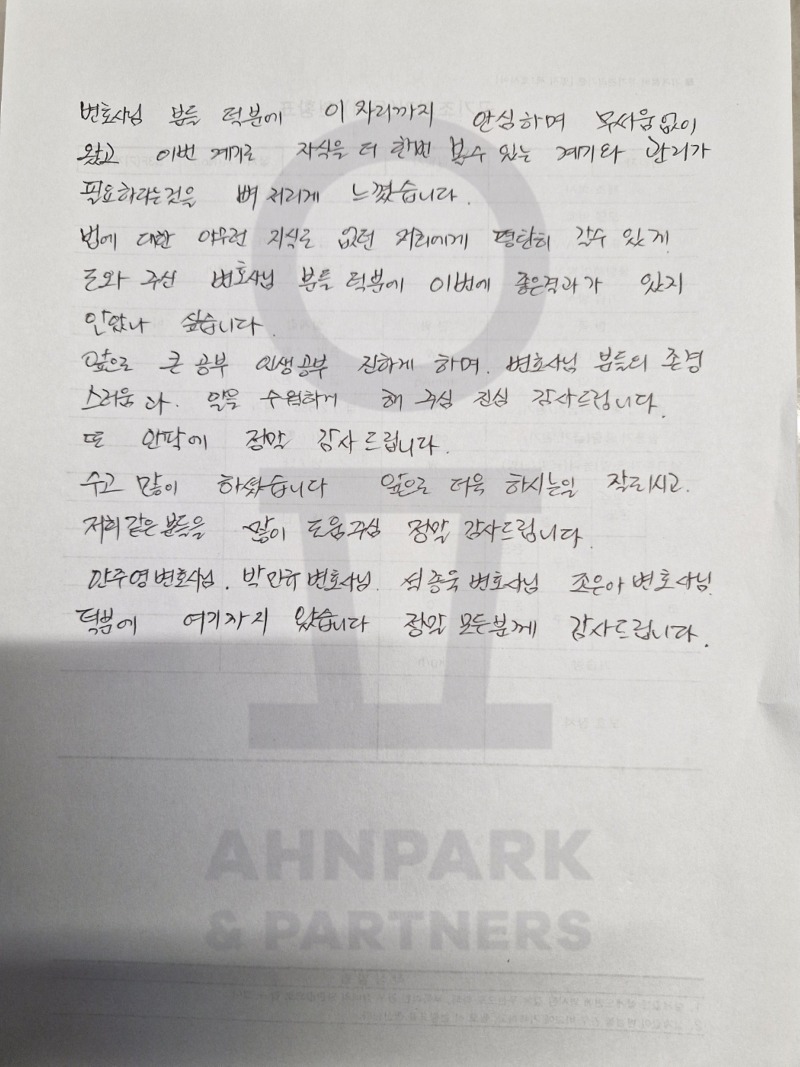 변호사님 분들 턱분에 이 자리까지 안심하며 무서움없이
왔고 이번 계기로 자식을 더 한번 볼수 있는 계기와 관리가
필요하다는것을 뼈 저리게 느꼈습니다.
법에 대한 아무런 지식도 없던 저희에게 명탄히 갈수 있게
도와 주신 변호사님 분들 턱분에 이번에 좋은결과가 있지
안았나 싶습니다.
앞으로 큰 공부 인생공부 진하게 하며. 변호사님 분들의 존경
스러움과. 일을 수월하게 해 주심 진심 감사드립니다.
또 안팍에 정말 감사드립니다.
수고 많이 하셨습니다 앞으로 더욱 하시는일 잘되시고.
저희같은분들을 많이 도움주심 정말 감사드립니다.
안주영변호사님. 박민규변호사님. 석종욱 변호사님 조은아 변호사님.
턱분에 여기까지 왔습니다 정말 모든분께 감사드립니다.
AHNPARK
& PARTNERS